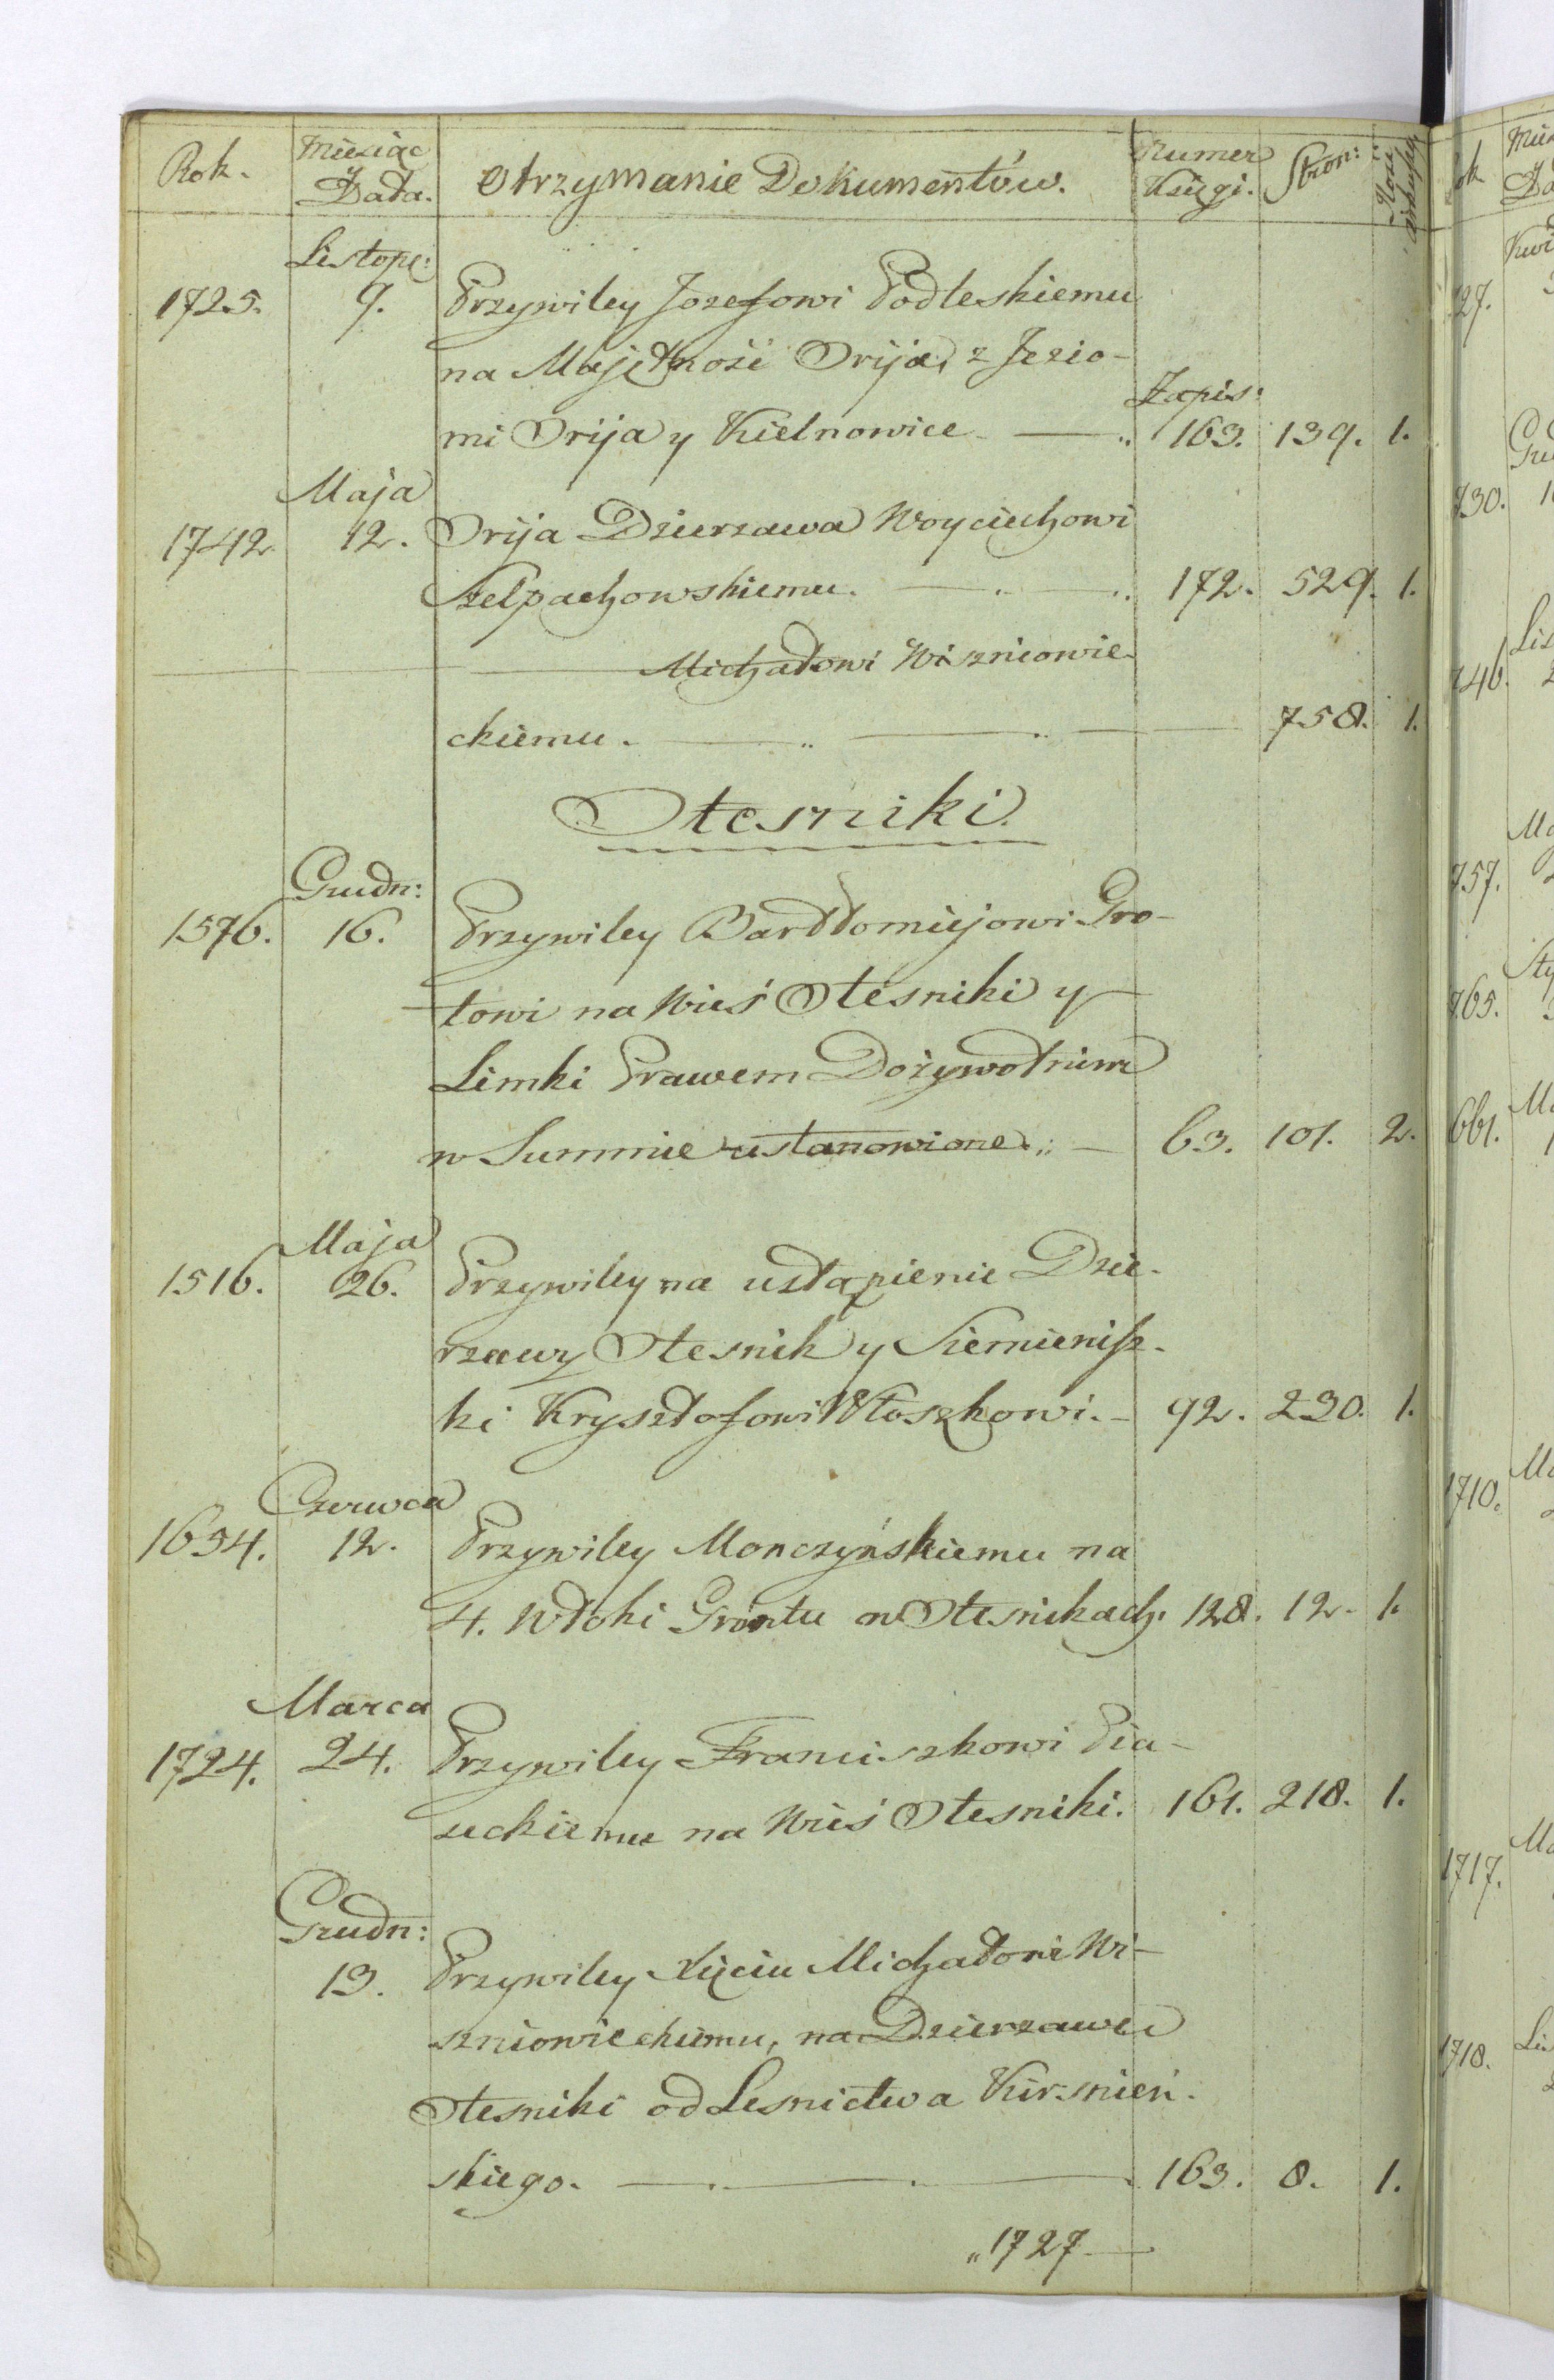 Rok. Miesiąc Data. Otrzymanie Dokumentów. Numer Księgi. Stron:
Listop:
1725. 9. Przywiley Jozefowi Podleskiemu
na Majętność Orija, z Jezio-
mi Orija y Kielnowice. — Zapis: 163. 139. 1.
Maja
1742 12. Orija Dzierzawa Woyciechowi
Szelpachowskiemu. — 172. 529. 1.
— Michałowi Wiszniowie-
ckiemu. — 758. 1.
Olesniki.
Grudn:
1576. 16. Przywiley Bartłomiejowi Gro-
towi na Wieś Olesniki y
Limki Prawem Dożywotnim
w Summie ustanowione. — 63. 101. 2.
Maja
1516. 26. Przywiley na ustąpienie Dzie-
rzawy Olesnik y Siemienisz-
ki Krysztofowi Włoszkowi. — 92. 230. 1.
Czerwca
1654. 12. Przywiley Monczyńskiemu na
4. Włoki Grontu w Olesnikach. 128. 12. 1.
Marca
1724. 24. Przywiley Franciszkowi Pia-
seckiemu na Wieś Olesniki. 161. 218. 1.
Grudn:
13. Przywiley Xięciu Michałowi Wi-
szniowieckiemu, na Dzierzawę
Olesniki od Lesnictwa Kirsnień-
skiego. — 163. 8. 1.
"1727 —